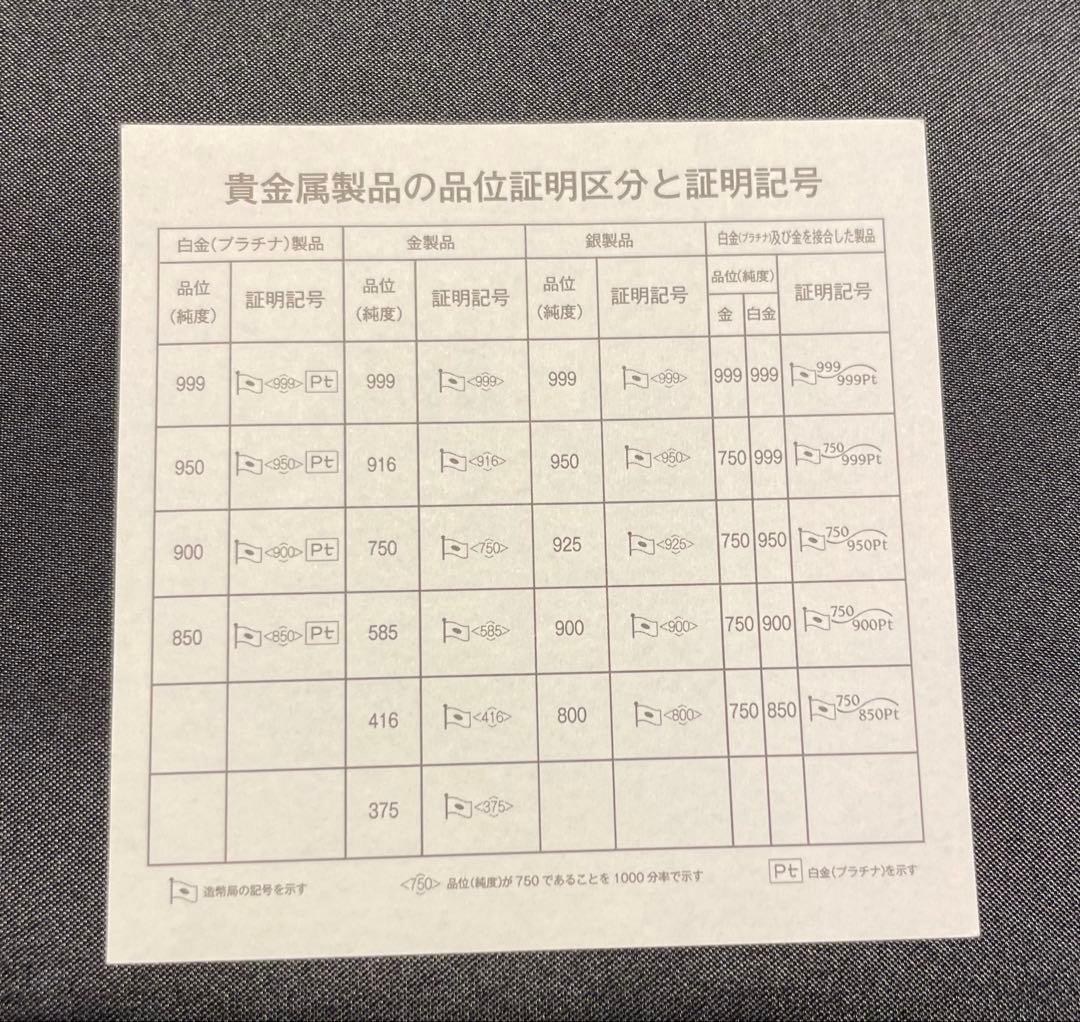 貴金属製品の品位証明区分と証明記号
白金(プラチナ)製品 金製品 銀製品 白金(プラチナ)及び金を接合した製品
品位(純度) 証明記号 品位(純度) 証明記号 品位(純度) 証明記号 品位(純度) 証明記号
金 白金
999 <999> Pt 999 <999> 999 <999> 999 999 999 999Pt
950 <950> Pt 916 <916> 950 <950> 750 999 750 999Pt
900 <900> Pt 750 <750> 925 <925> 750 950 750 950Pt
850 <850> Pt 585 <585> 900 <900> 750 900 750 900Pt
416 <416> 800 <800> 750 850 750 850Pt
375 <375>
造幣局の記号を示す <750> 品位(純度)が750であることを1000分率で示す Pt 白金(プラチナ)を示す